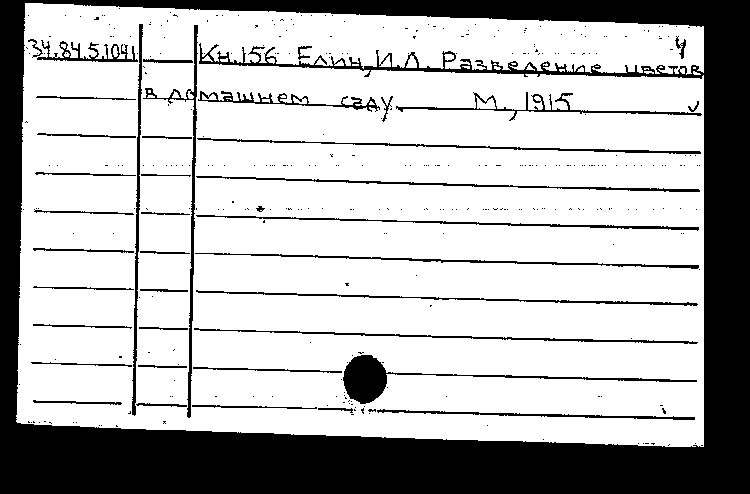 4
34.84.5.1041 Кн.156 Елин, И.Л. Разведение цветов
в домашнем саду. М., 1915 v